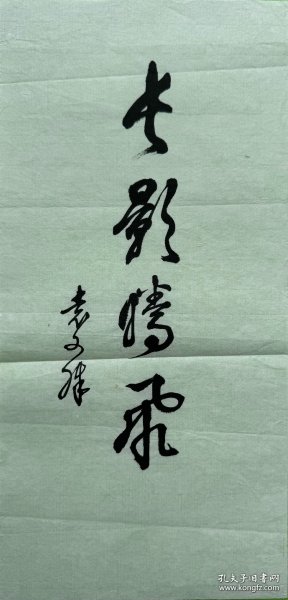 长影腾飞
袁文殊
孔夫子旧书网
www.kongfz.com